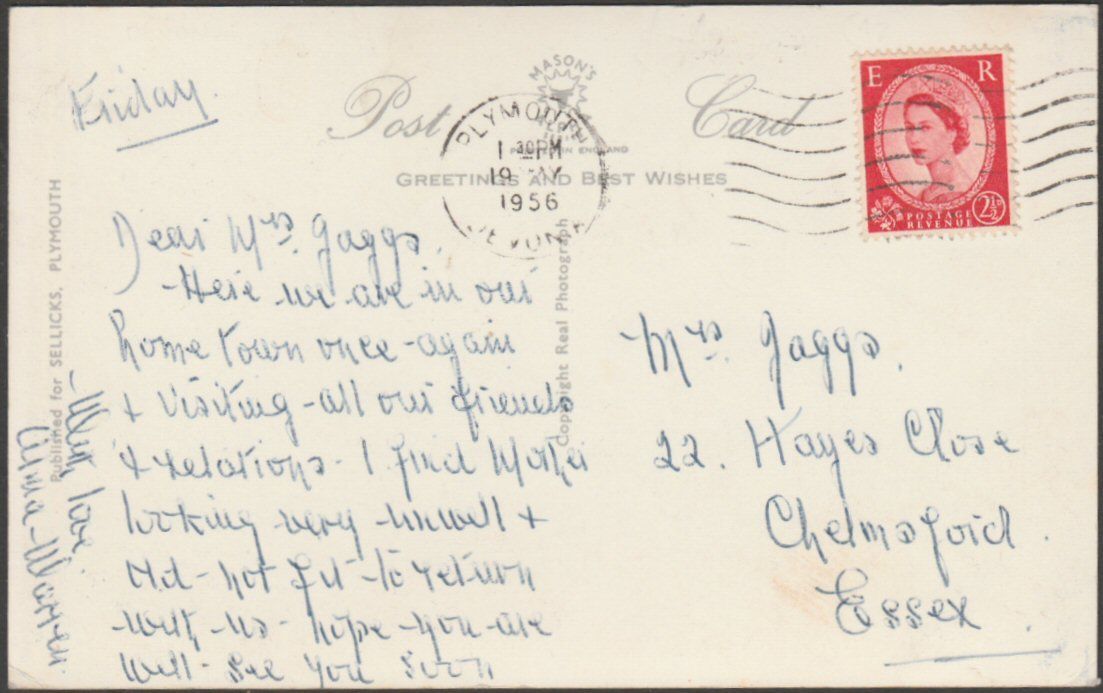 Friday.
Post Card
MASON'S
PRINTED IN ENGLAND
GREETINGS AND BEST WISHES
PLYMOUTH
1 30 PM
19 MAY
1956
DEVON
E R
POSTAGE
REVENUE
2½
Dear Mrs. Jaggs.
Here we are in our
home town once again
& visiting all our friends
& relations. I find Mother
looking very unwell &
old - not fit to return
with us - hope you are
well - See you soon
With love
Anna Warren.
Mrs. Jaggs.
22. Hayes Close
Chelmsford.
Essex.
Published for SELLICKS, PLYMOUTH
Copyright Real Photograph